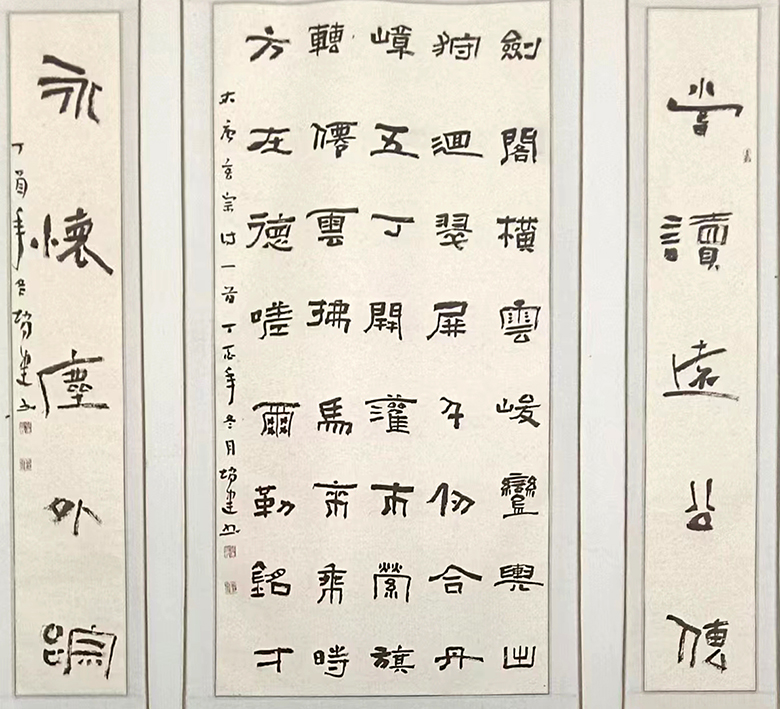 嘗讀遠公傳
劍閣橫雲峻鑾輿出
狩迴翠屏千仞合丹
嶂五丁開灌木縈旗
轉僊雲拂馬來乘時
方在德嗟爾勒銘才
唐玄宗诗一首丁酉年冬月建书
永懷塵外蹤
丁酉年冬建书